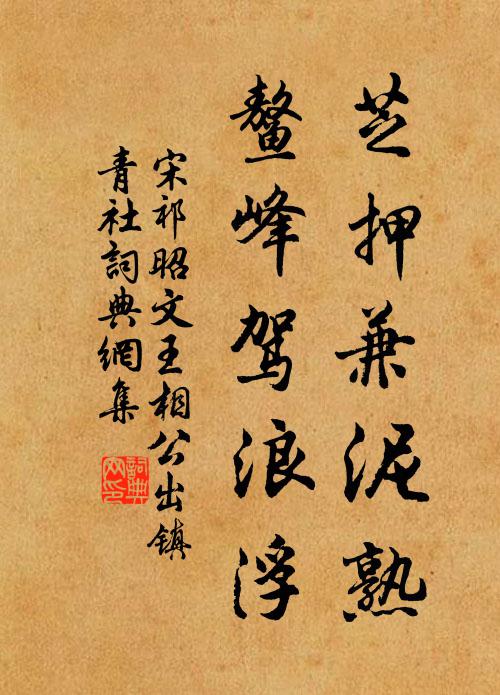 芝押兼泥熟
鳌峰驾浪浮
宋祁昭文王相公出镇
青社詞典網集
詞典網印